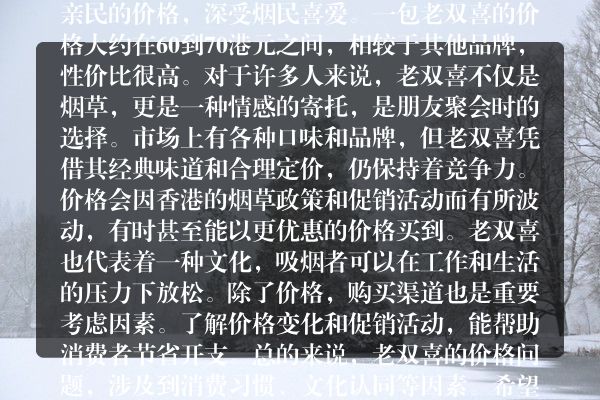 亲民的价格，深受烟民喜爱。一包老双喜的价
格大约在60到70港元之间，相较于其他品牌，
性价比很高。对于许多人来说，老双喜不仅是
烟草，更是一种情感的寄托，是朋友聚会时的
选择。市场上有各种口味和品牌，但老双喜凭
借其经典味道和合理定价，仍保持着竞争力。
价格会因香港的烟草政策和促销活动而有所波
动，有时甚至能以更优惠的价格买到。老双喜
也代表着一种文化，吸烟者可以在工作和生活
的压力下放松。除了价格，购买渠道也是重要
考虑因素。了解价格变化和促销活动，能帮助
消费者节省开支。总的来说，老双喜的价格问
题，涉及到消费习惯、文化认同等因素。希望